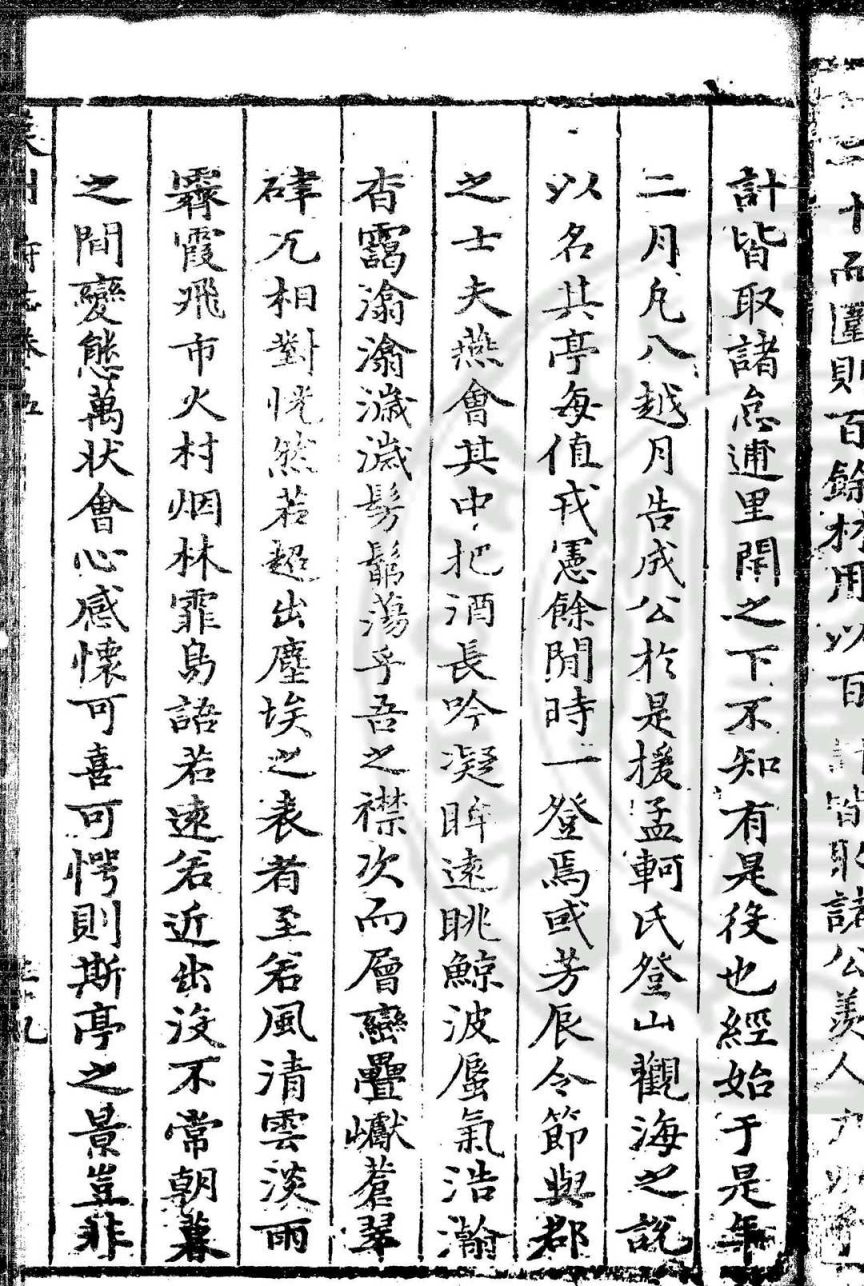 十而圍則百餘材用以百計皆取諸公羨人
計皆取諸怠逋里閈之下不知有是役也經始于是年
二月凡八越月告成公於是援孟軻氏登山觀海之說
以名其亭每值戎憲餘閒時一登焉或芳辰令節與郡
之士夫燕會其中把酒長吟凝眸遠眺鯨波蜃氣浩瀚
杳靄滃滃濊濊髣髴蕩乎吾之襟次而層巒疊巘蒼翠
硉兀相對恍然若超出塵埃之表者至若風清雲淡雨
霽霞飛市火村烟林霏鳥語若遠若近出没不常朝暮
之間變態萬状會心感懷可喜可愕則斯亭之景豈非
州府志卷